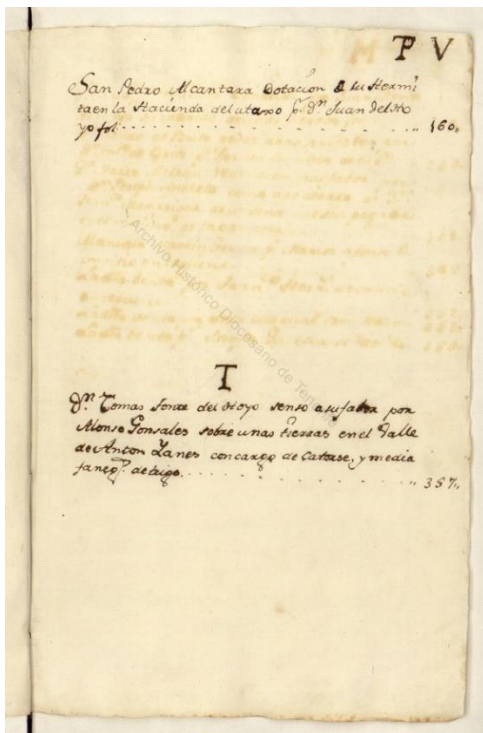 P V
San Pedro Alcantara Dotacion d su Hermi
ta en la Hacienda del utaxo pr. Dn. Juan del Ho
yo fol. 160„
Archivo Histórico Diocesano de Tene
T
Dn. Tomas fonte del Hoyo senso a su fabor por
Alonso Gonsales sobre unas tierras en el Valle
de Anton Lanes con cargo de Catorse, y media
faneg.s de trigo. 357„